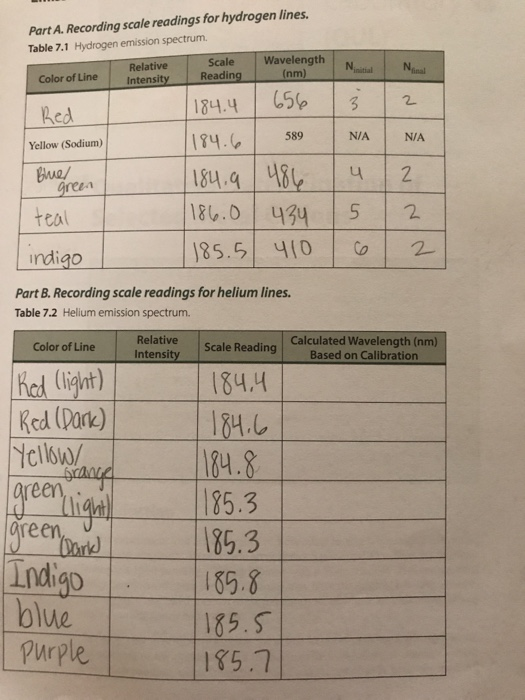 Part A. Recording scale readings for hydrogen lines.
Table 7.1 Hydrogen emission spectrum.
Color of Line Relative Intensity Scale Reading Wavelength (nm) Ninitial Nfinal
Red 184.4 656 3 2
Yellow (Sodium) 184.6 589 N/A N/A
Blue/green 184.9 486 4 2
teal 186.0 434 5 2
indigo 185.5 410 6 2
Part B. Recording scale readings for helium lines.
Table 7.2 Helium emission spectrum.
Color of Line Relative Intensity Scale Reading Calculated Wavelength (nm) Based on Calibration
Red (light) 184.4
Red (Dark) 184.6
Yellow/orange 184.8
green (light) 185.3
green (Dark) 185.3
Indigo 185.8
blue 185.5
purple 185.7